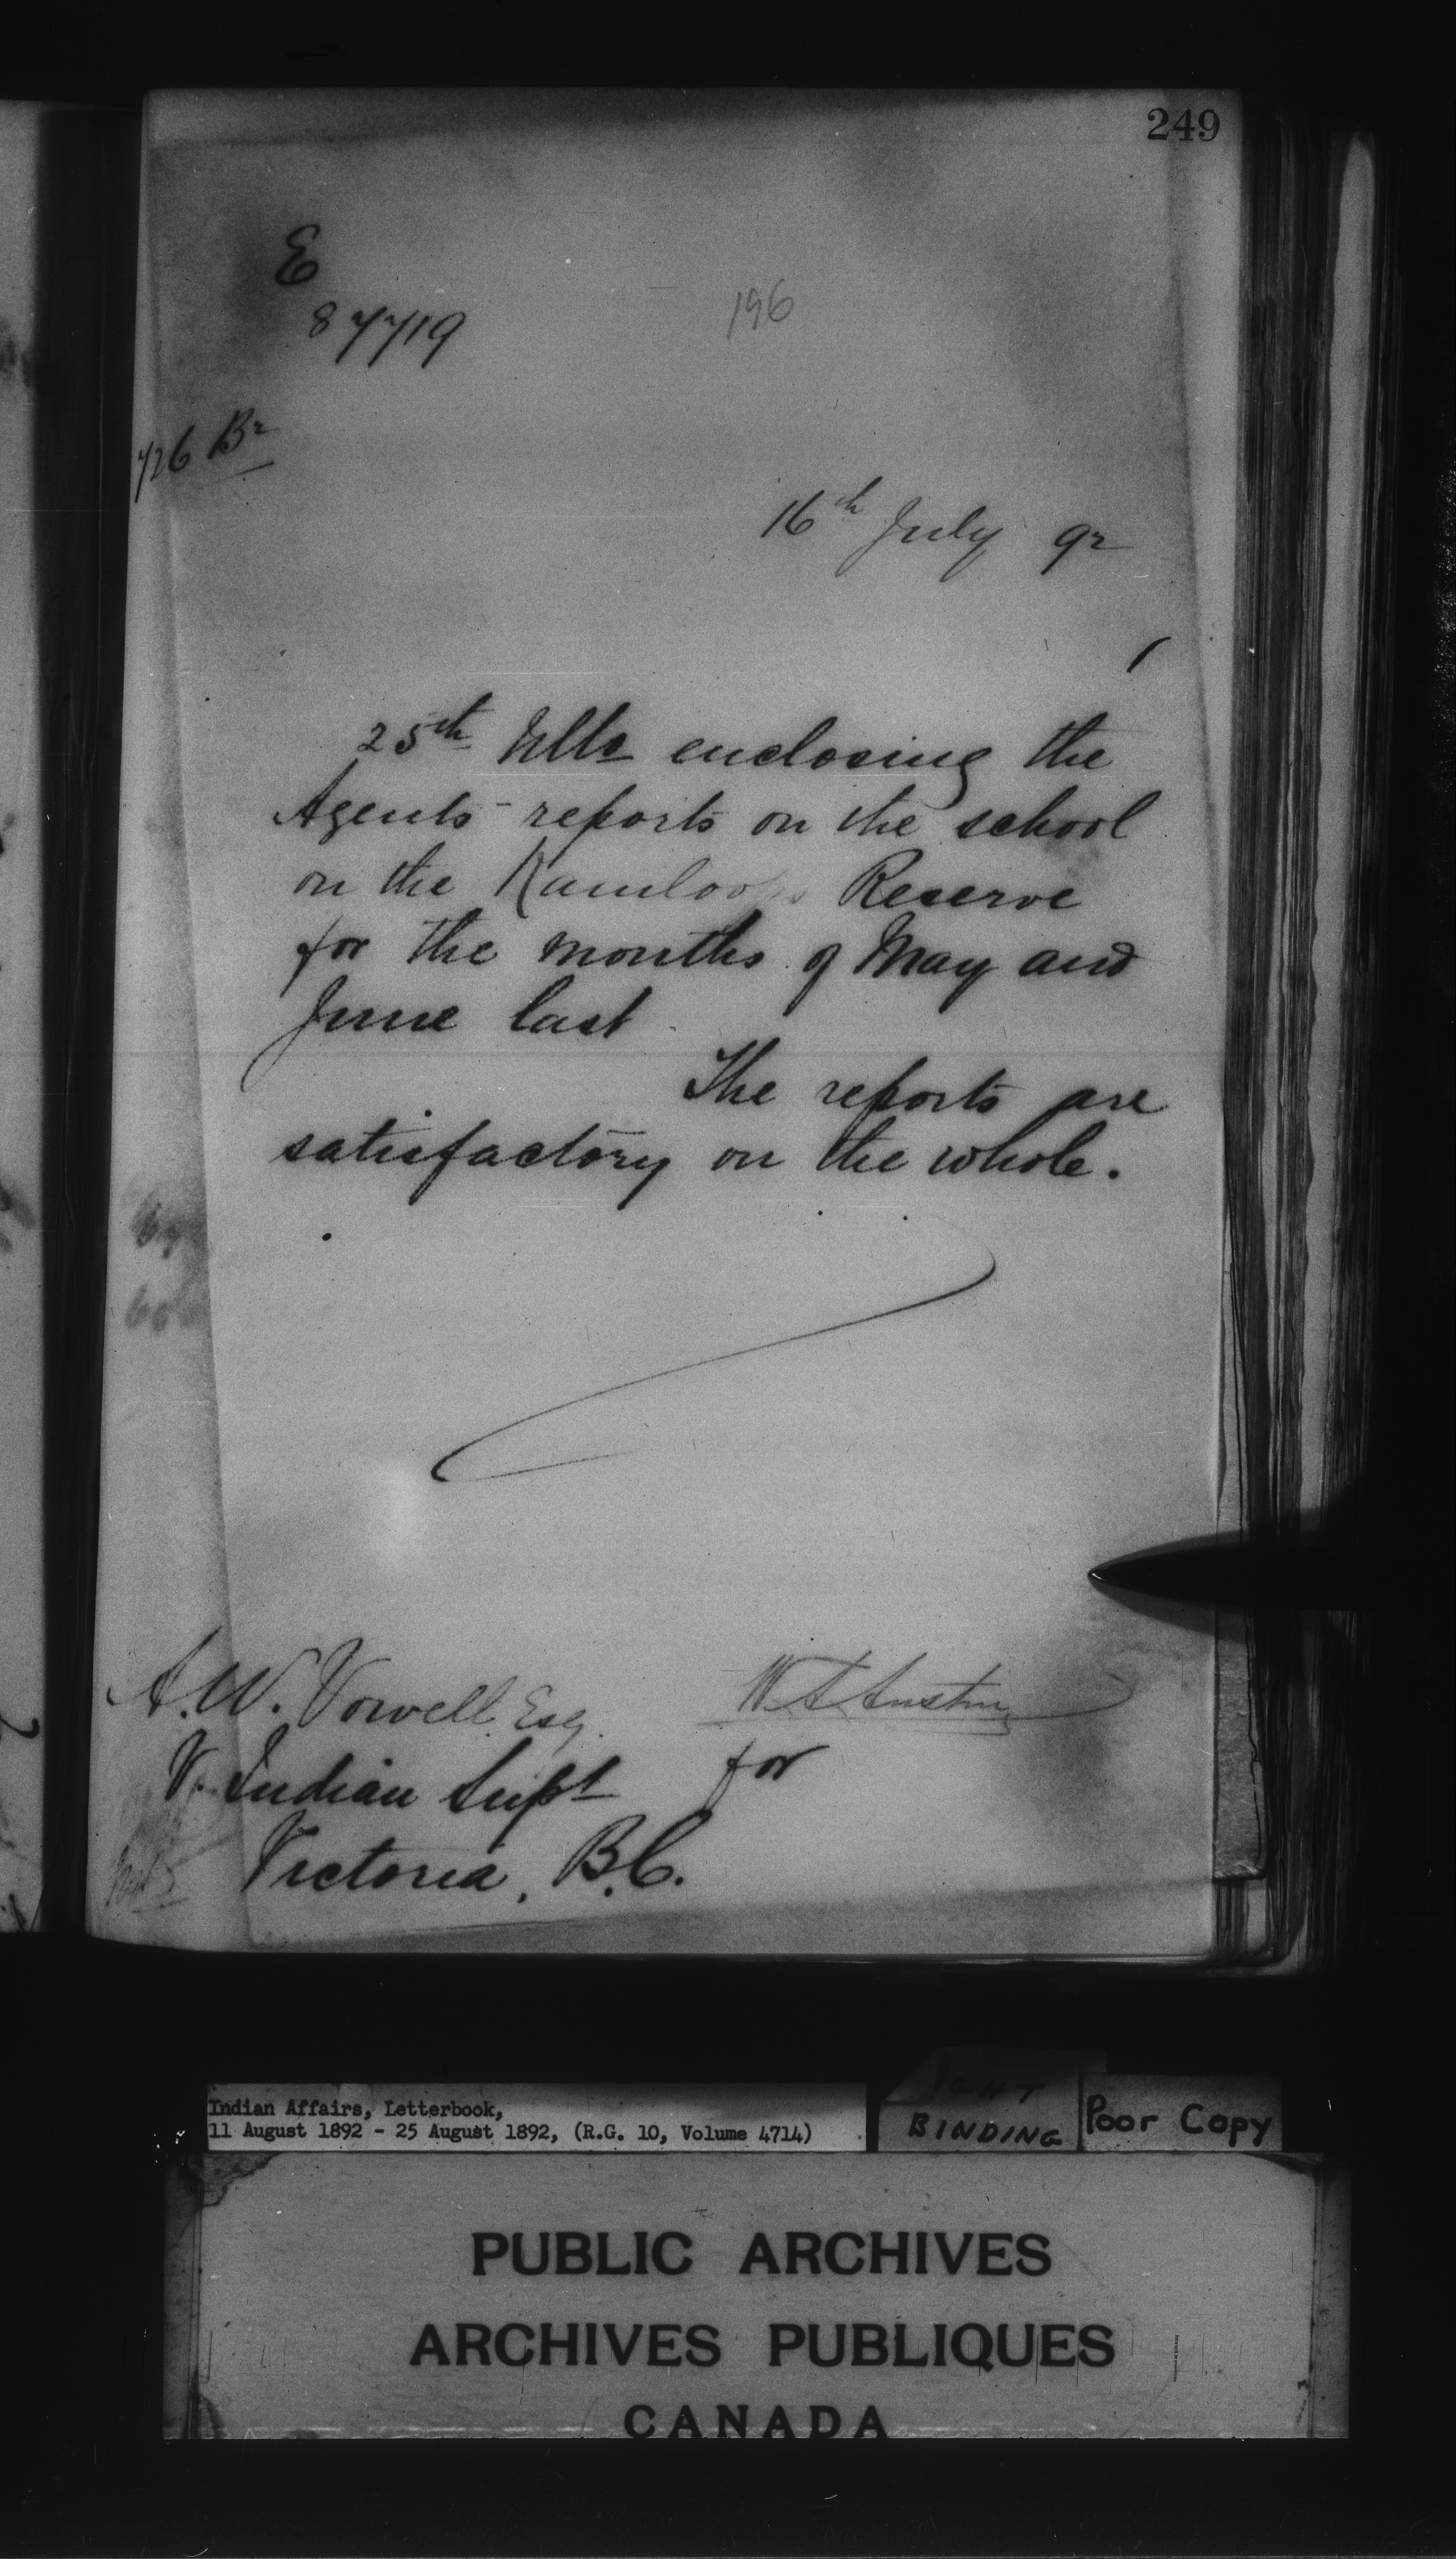 249
E
87719
196
726 Br
16th July 92
25th Ulto enclosing the
Agents reports on the school
on the Kamloops Reserve
for the months of May and
June last
The reports are
satisfactory on the whole.
A.W. Vowell Esq.
W A Austin
V. Indian Supt
for
Victoria, B.C.
Indian Affairs, Letterbook,
11 August 1892 - 25 August 1892, (R.G. 10, Volume 4714)
BINDING
Poor Copy
PUBLIC ARCHIVES
ARCHIVES PUBLIQUES
CANADA